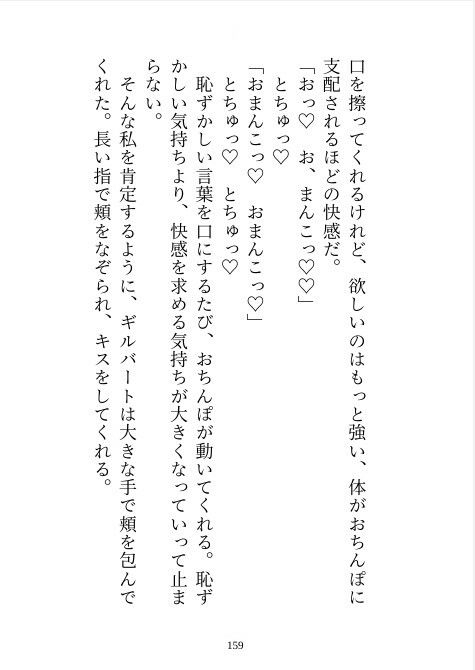 口を擦ってくれるけれど、欲しいのはもっと強い、体がおちんぽに
支配されるほどの快感だ。
「おっ♡　お、まんこっ♡♡」
とちゅっ♡
「おまんこっ♡　おまんこっ♡」
とちゅっ♡　とちゅっ♡
恥ずかしい言葉を口にするたび、おちんぽが動いてくれる。恥ず
かしい気持ちより、快感を求める気持ちが大きくなっていって止ま
らない。
そんな私を肯定するように、ギルバートは大きな手で頬を包んで
くれた。長い指で頬をなぞられ、キスをしてくれる。
159